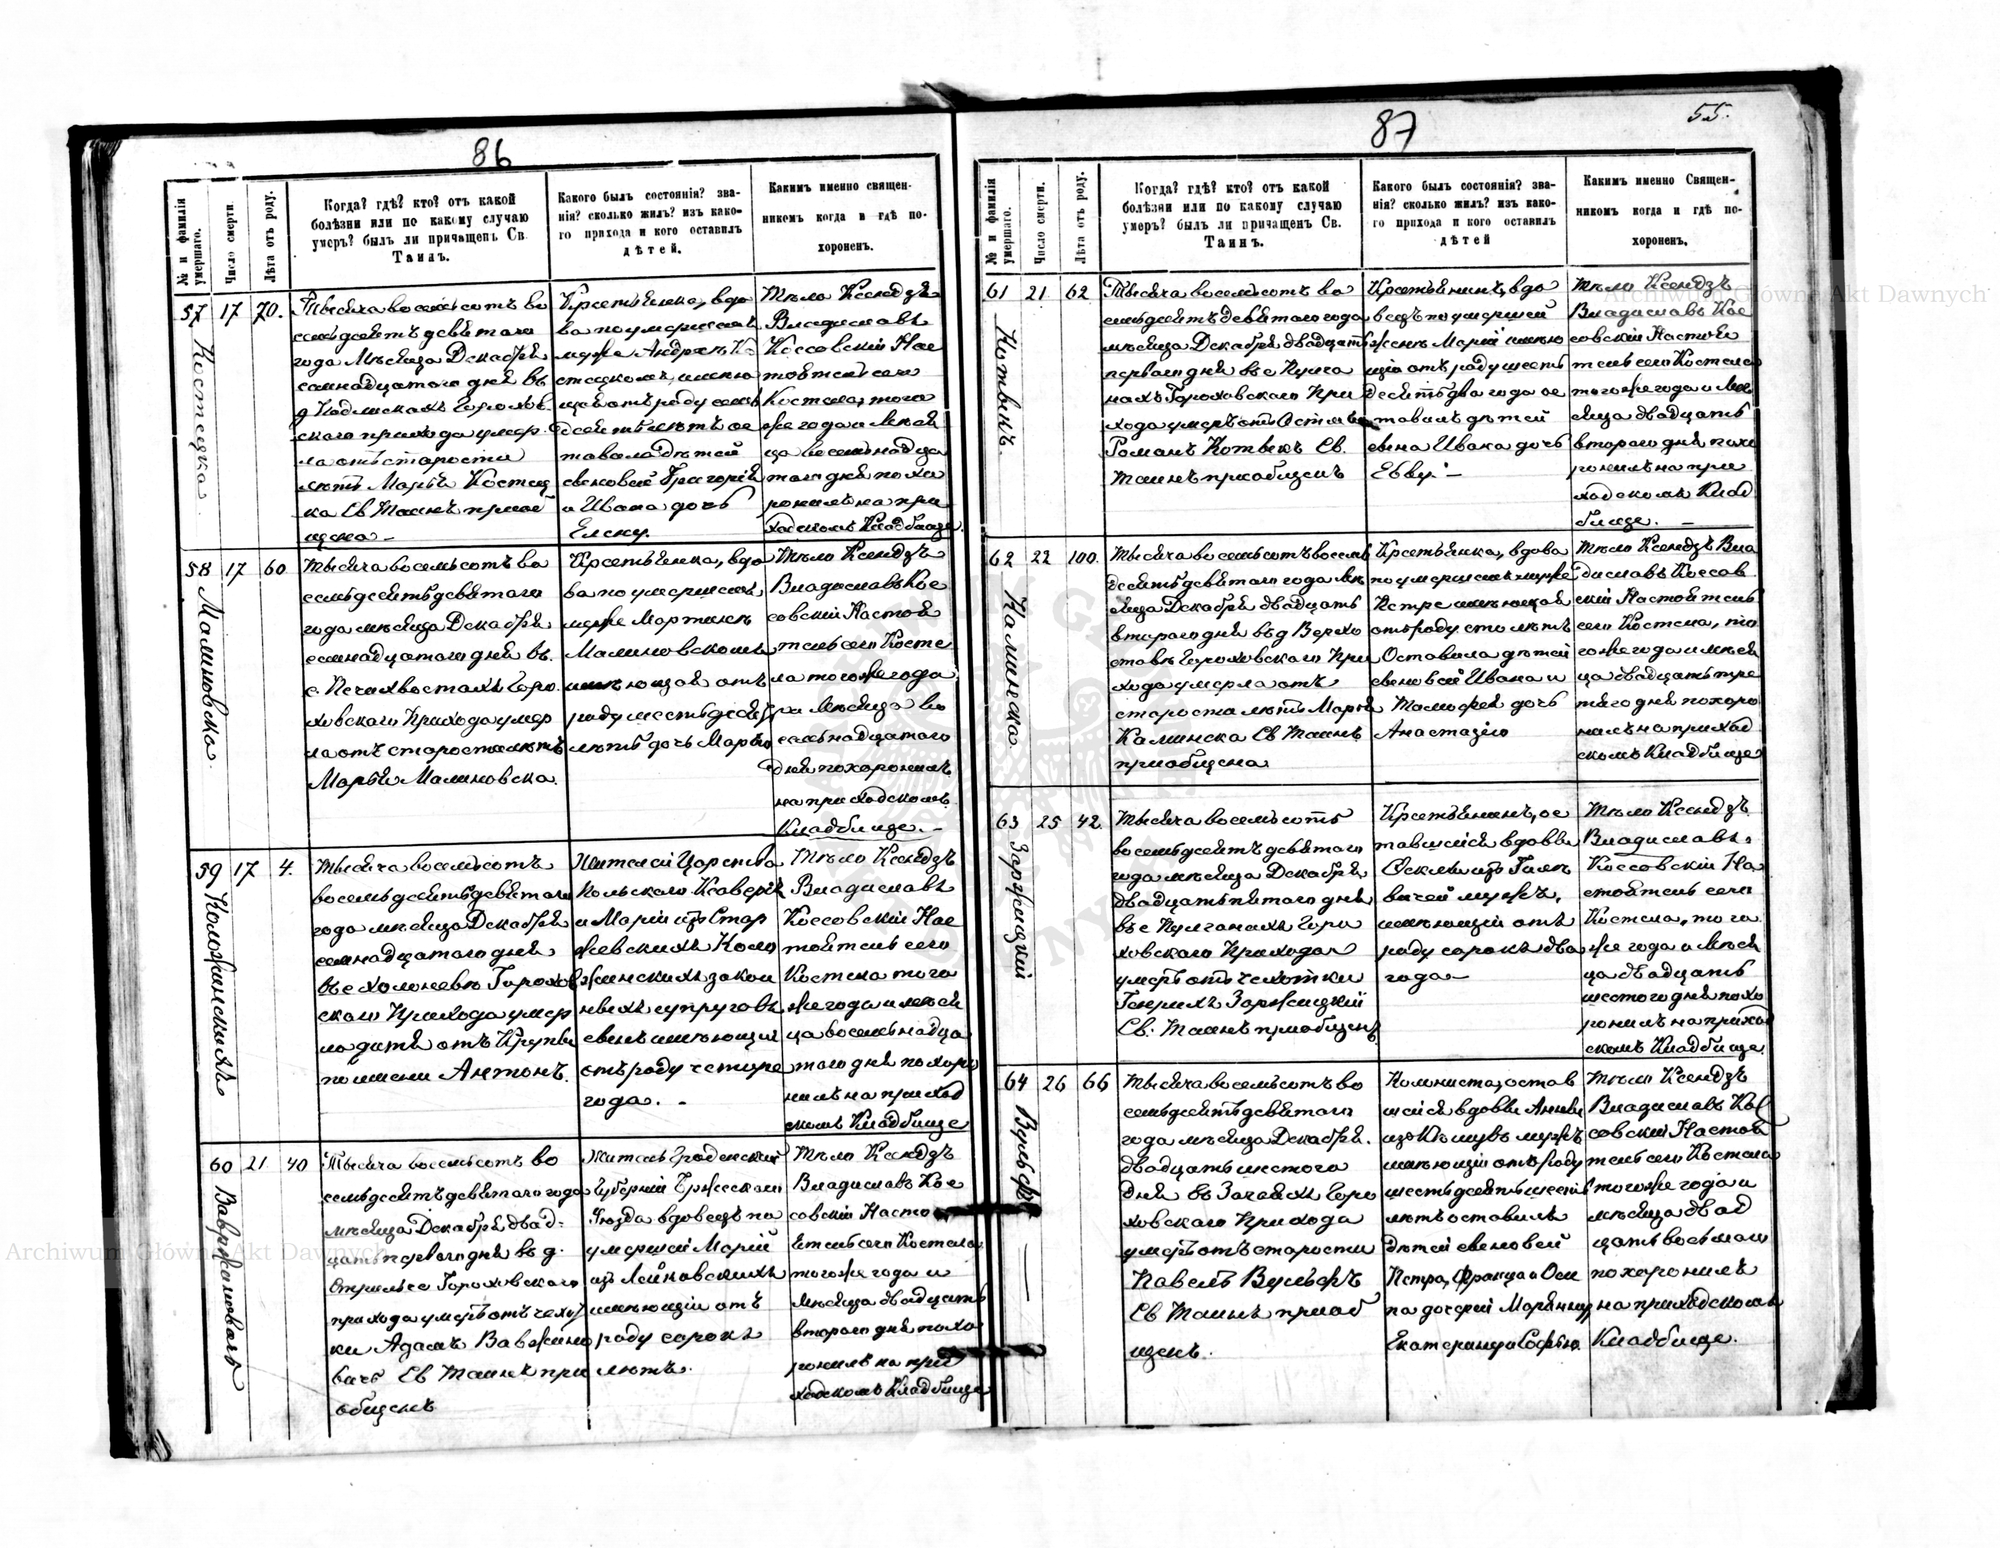 86
№ и фамилія умершаго.
Число смерти.
Лѣта отъ роду.
Когда? гдѣ? кто? отъ какой
болѣзни или по какому случаю
умеръ? былъ ли причащенъ Св.
Таинъ.
Какого былъ состоянія? зва-
нія? сколько жилъ? изъ како-
го прихода и кого оставилъ
дѣтей.
Какимъ именно священ-
никомъ когда и гдѣ по-
хороненъ.
57 17 70.
Костецка
Тысяча восемьсотъ во
семьдесятъ девятаго
года Мѣсяца Декабря
семнадцатаго дня въ
д Подлискахъ Горохов
скаго прихода умер
ла отъ старости
лѣтъ Марья Костец
ка Св Таинъ приоб
щена —
Крестьянка, вдо
ва по умершемъ
мужѣ Андреѣ Ко
стецкомъ, имѣю
щая отъ роду семь
десятъ лѣтъ ос
тавила дѣтей
сыновей Григорія
и Ивана дочь
Елену.
Тѣло Ксендзъ
Владиславъ
Коссовскій Нас
тоятель сего
Костела, того
же года и Мѣся
ца восемнадца
таго дня похо
ронилъ на при
ходскомъ Кладбище.
58 17 60
Малиновска.
Тысяча восемьсотъ во
семьдесятъ девятаго
года мѣсяца Декабря
семнадцатаго дня въ
с. Печихвостахъ Горо
ховскаго Прихода умер
ла отъ старости лѣтъ
Марья Малиновска.
Крестьянка, вдо
ва по умершемъ
мужѣ Мартинѣ
Малиновскомъ
имѣющая отъ
роду шестьдесятъ
лѣтъ дочь Марью
Тѣло Ксендзъ
Владиславъ Кос
совскій Настоя
тель сего Косте
ла того же года
и Мѣсяца во
семнадцатаго
дня похоронилъ
на приходскомъ
Кладбище. —
59 17 4.
Тысяча восемьсотъ
восемьдесятъ девятаго
года мѣсяца Декабря
семнадцатаго дня
въ с Холоневѣ Горохов
скаго Прихода умер
ло дитя отъ Крупы
по имени Антонъ.
Жителей Царства
Польскаго Ксаверія
и Маріи изъ
закон
ныхъ супруговъ
сынъ имѣющій
отъ роду четыре
года. —
Тѣло Ксендзъ
Владиславъ
Коссовскій Нас
тоятель сего
Костела того
же года и мѣся
ца восемнадца
таго дня похоро
нилъ на приход
скомъ Кладбище
60 21 40
Тысяча восемьсотъ во
семьдесятъ девятаго года
мѣсяца Декабря двад-
цать перваго дня въ д.
Гороховскаго
прихода умеръ отъ чахот
ки Адамъ
Св Таинъ при
общенъ
Житель Гродненской
Губерніи Бржескаго
Уѣзда вдовецъ по
умершей Маріи
изъ
имѣющій отъ
роду сорокъ
лѣтъ.
Тѣло Ксендзъ
Владиславъ Кос
совскій Насто
ятель сего Костела
того же года и
Мѣсяца двадцать
втораго дня похо
ронилъ на при
ходскомъ Кладбище
87
55.
№ и фамилія умершаго.
Число смерти.
Лѣта отъ роду.
Когда? гдѣ? кто? отъ какой
болѣзни или по какому случаю
умеръ? былъ ли причащенъ Св.
Таинъ.
Какого былъ состоянія? зва-
нія? сколько жилъ? изъ како-
го прихода и кого оставилъ
дѣтей
Какимъ именно Священ-
никомъ когда и гдѣ по-
хороненъ.
61 21 62
Котыкъ.
Тысяча восемьсотъ во
семьдесятъ девятаго года
мѣсяца Декабря двадцать
перваго дня въ с
Гороховскаго При
хода умеръ отъ
Романъ Котыкъ Св.
Таинъ приобщенъ
Крестьянинъ, вдо
вецъ по умершей
женѣ Маріи имѣю
щій отъ роду шесть
десятъ два года ос
тавилъ дѣтей
сына Ивана дочь
Евву. —
Тѣло Ксендзъ
Владиславъ Кос
совскій Настоя
тель сего Костела
того же года и Мѣс
яца двадцать
втораго дня похо
ронилъ на при
ходскомъ Клад
бище. —
62 22 100.
Калинска
Тысяча восемьсотъ восемь
десятъ девятаго года Мѣ
сяца Декабря двадцать
втораго дня въ д Верхо
ставѣ Гороховскаго При
хода умерла отъ
старости лѣтъ Марья
Калинска Св Таинъ
приобщена
Крестьянка, вдова
по умершемъ мужѣ
Петре имѣющая
отъ роду сто лѣтъ
Оставила дѣтей
сыновей Ивана и
Тимофея дочь
Анастазію
Тѣло Ксендзъ Вла
диславъ Коссов
скій Настоятель
сего Костела, то
го же года и мѣся
ца двадцать тре
тяго дня похоро
нилъ на приход
скомъ Кладбище
63 25 42.
Заржицкій
Тысяча восемьсотъ
восемьдесятъ девятаго
года мѣсяца Декабря
двадцать пятаго дня
въ с Пулганахъ Горо
ховскаго Прихода
умеръ отъ чахотки
Генрихъ Заржицкій
Св. Таинъ приобщенъ
Крестьянинъ, ос
тавшійся вдовы
мужъ,
имѣющій отъ
роду сорокъ два
года —
Тѣло Ксендзъ
Владиславъ
Коссовскій На
стоятель сего
Костела, того
же года и Мѣся
ца двадцать
шестого дня похо
ронилъ на приход
скомъ Кладбище
64 26 66
Вульфъ
Тысяча восемьсотъ во
семьдесятъ девятаго
года мѣсяца Декабря.
двадцать шестого
дня въ Горо
ховскаго Прихода
умеръ отъ старости
Павелъ Вульфъ
Св Таинъ приоб
щенъ.
Колониста, остав
шейся вдовы Анны
мужъ
имѣющій отъ роду
шестьдесятъ шесть
лѣтъ оставилъ
дѣтей сыновей
Петра, Франца и Оси
па дочерей Марянну
Екатерину и Софью.
Тѣло Ксендзъ
Владиславъ Кос
совскій Настоя
тель сего Костела
того же года и
мѣсяца двад
цать восьмаго
похоронилъ
на приходскомъ
Кладбище.
Archiwum Główne Akt Dawnych
Archiwum Główne Akt Dawnych